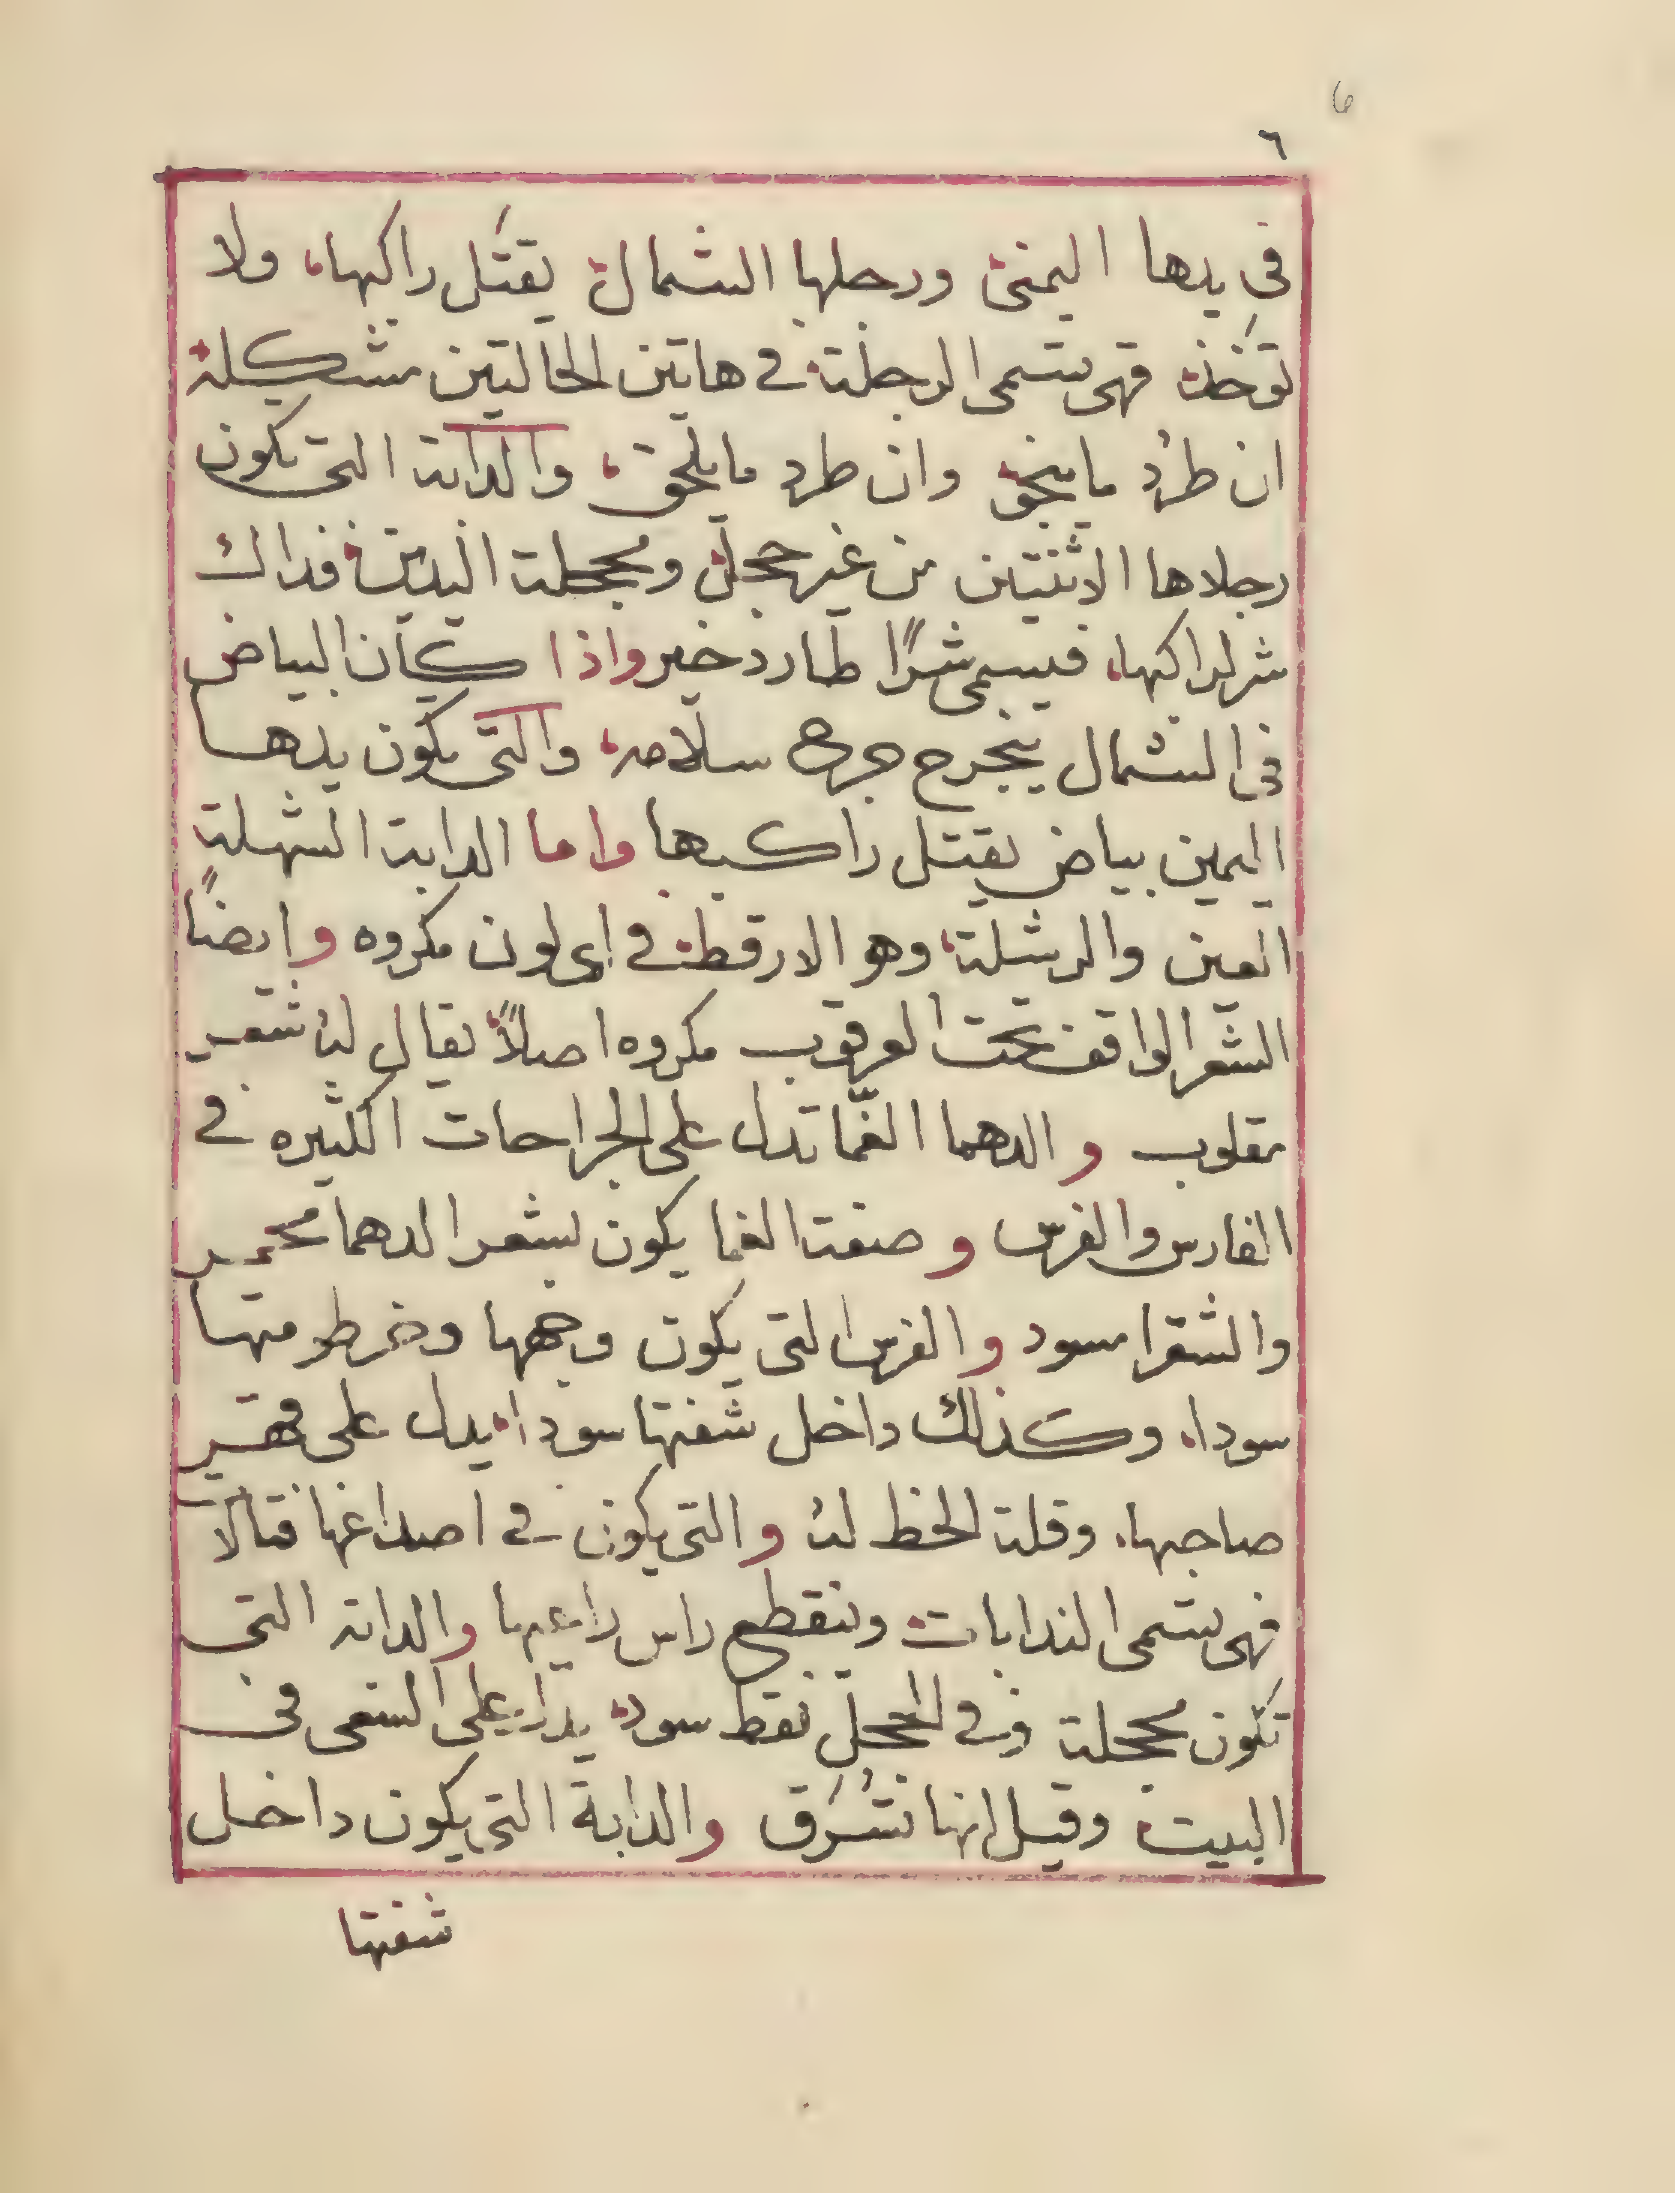 6
٦
في يدها اليمنى ورجلها الشمال يقتل راكبها، ولا
توخذ فهى تسمى الرجلة في هاتين الحالتين مشكلة
ان طرد ما ينجو وان طرد ما يلحق، والدابة التى تكون
رجلاها الاثنتين من غير حجل ومحجلة اليدين فداك
شر لراكبها، فيسمى شرًا طارد خير واذا كان البياض
فى الشمال ينجرح جرح سلامه، والتى يكون يدها
اليمين بياض يقتل راكبها واما الدابة الشهلة
العين والرشلة، وهو الارقطة في اى لون مكروه وايضًا
الشعر الواقف تحت العرقوب مكروه اصلاً يقال له شعر
مقلوب والدهما الغمّا تدل على الجراحات الكثيره في
الفارس والفرس وصفة الغما يكون بشعر الدهما محمر
والشقرا مسود والفرس التى يكون وجهها وخرطومتها
سودا، وكذلك داخل شفتها سودا، يدل على قهر
صاحبها، وقلة الحظ له والتى يكون في اصداغها فتالات
فهى تسمى الندابات وتنقطع راس راعيها والدابه التى
تكون محجلة وفي الحجل نقط سود، يدل على السعى فى
البيت وقيل انها تُسرَق والدابة التى يكون داخل
شفتها